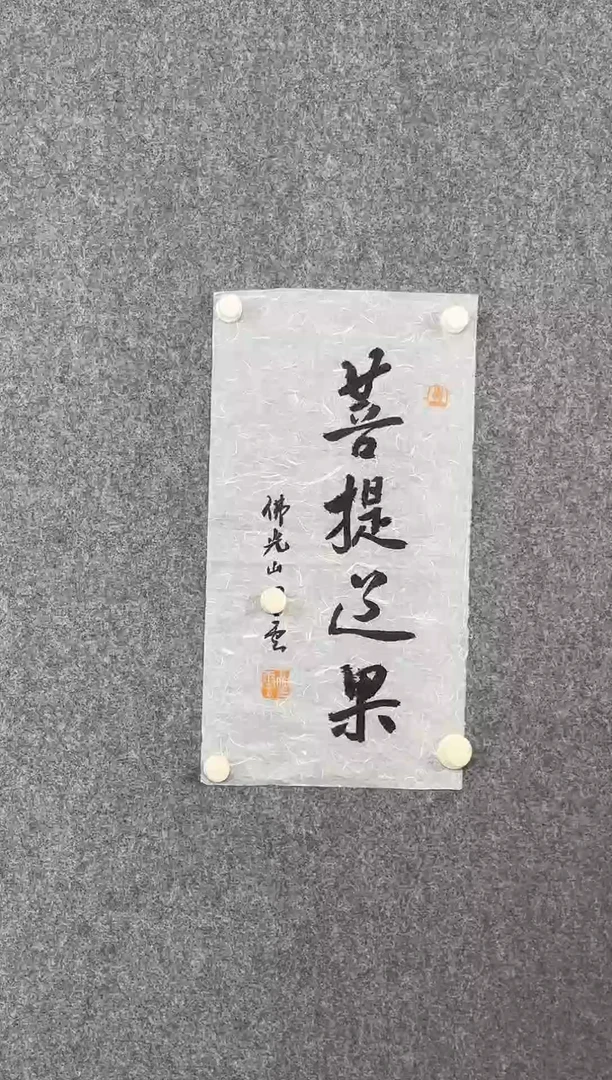 菩提道果
佛光山 雲